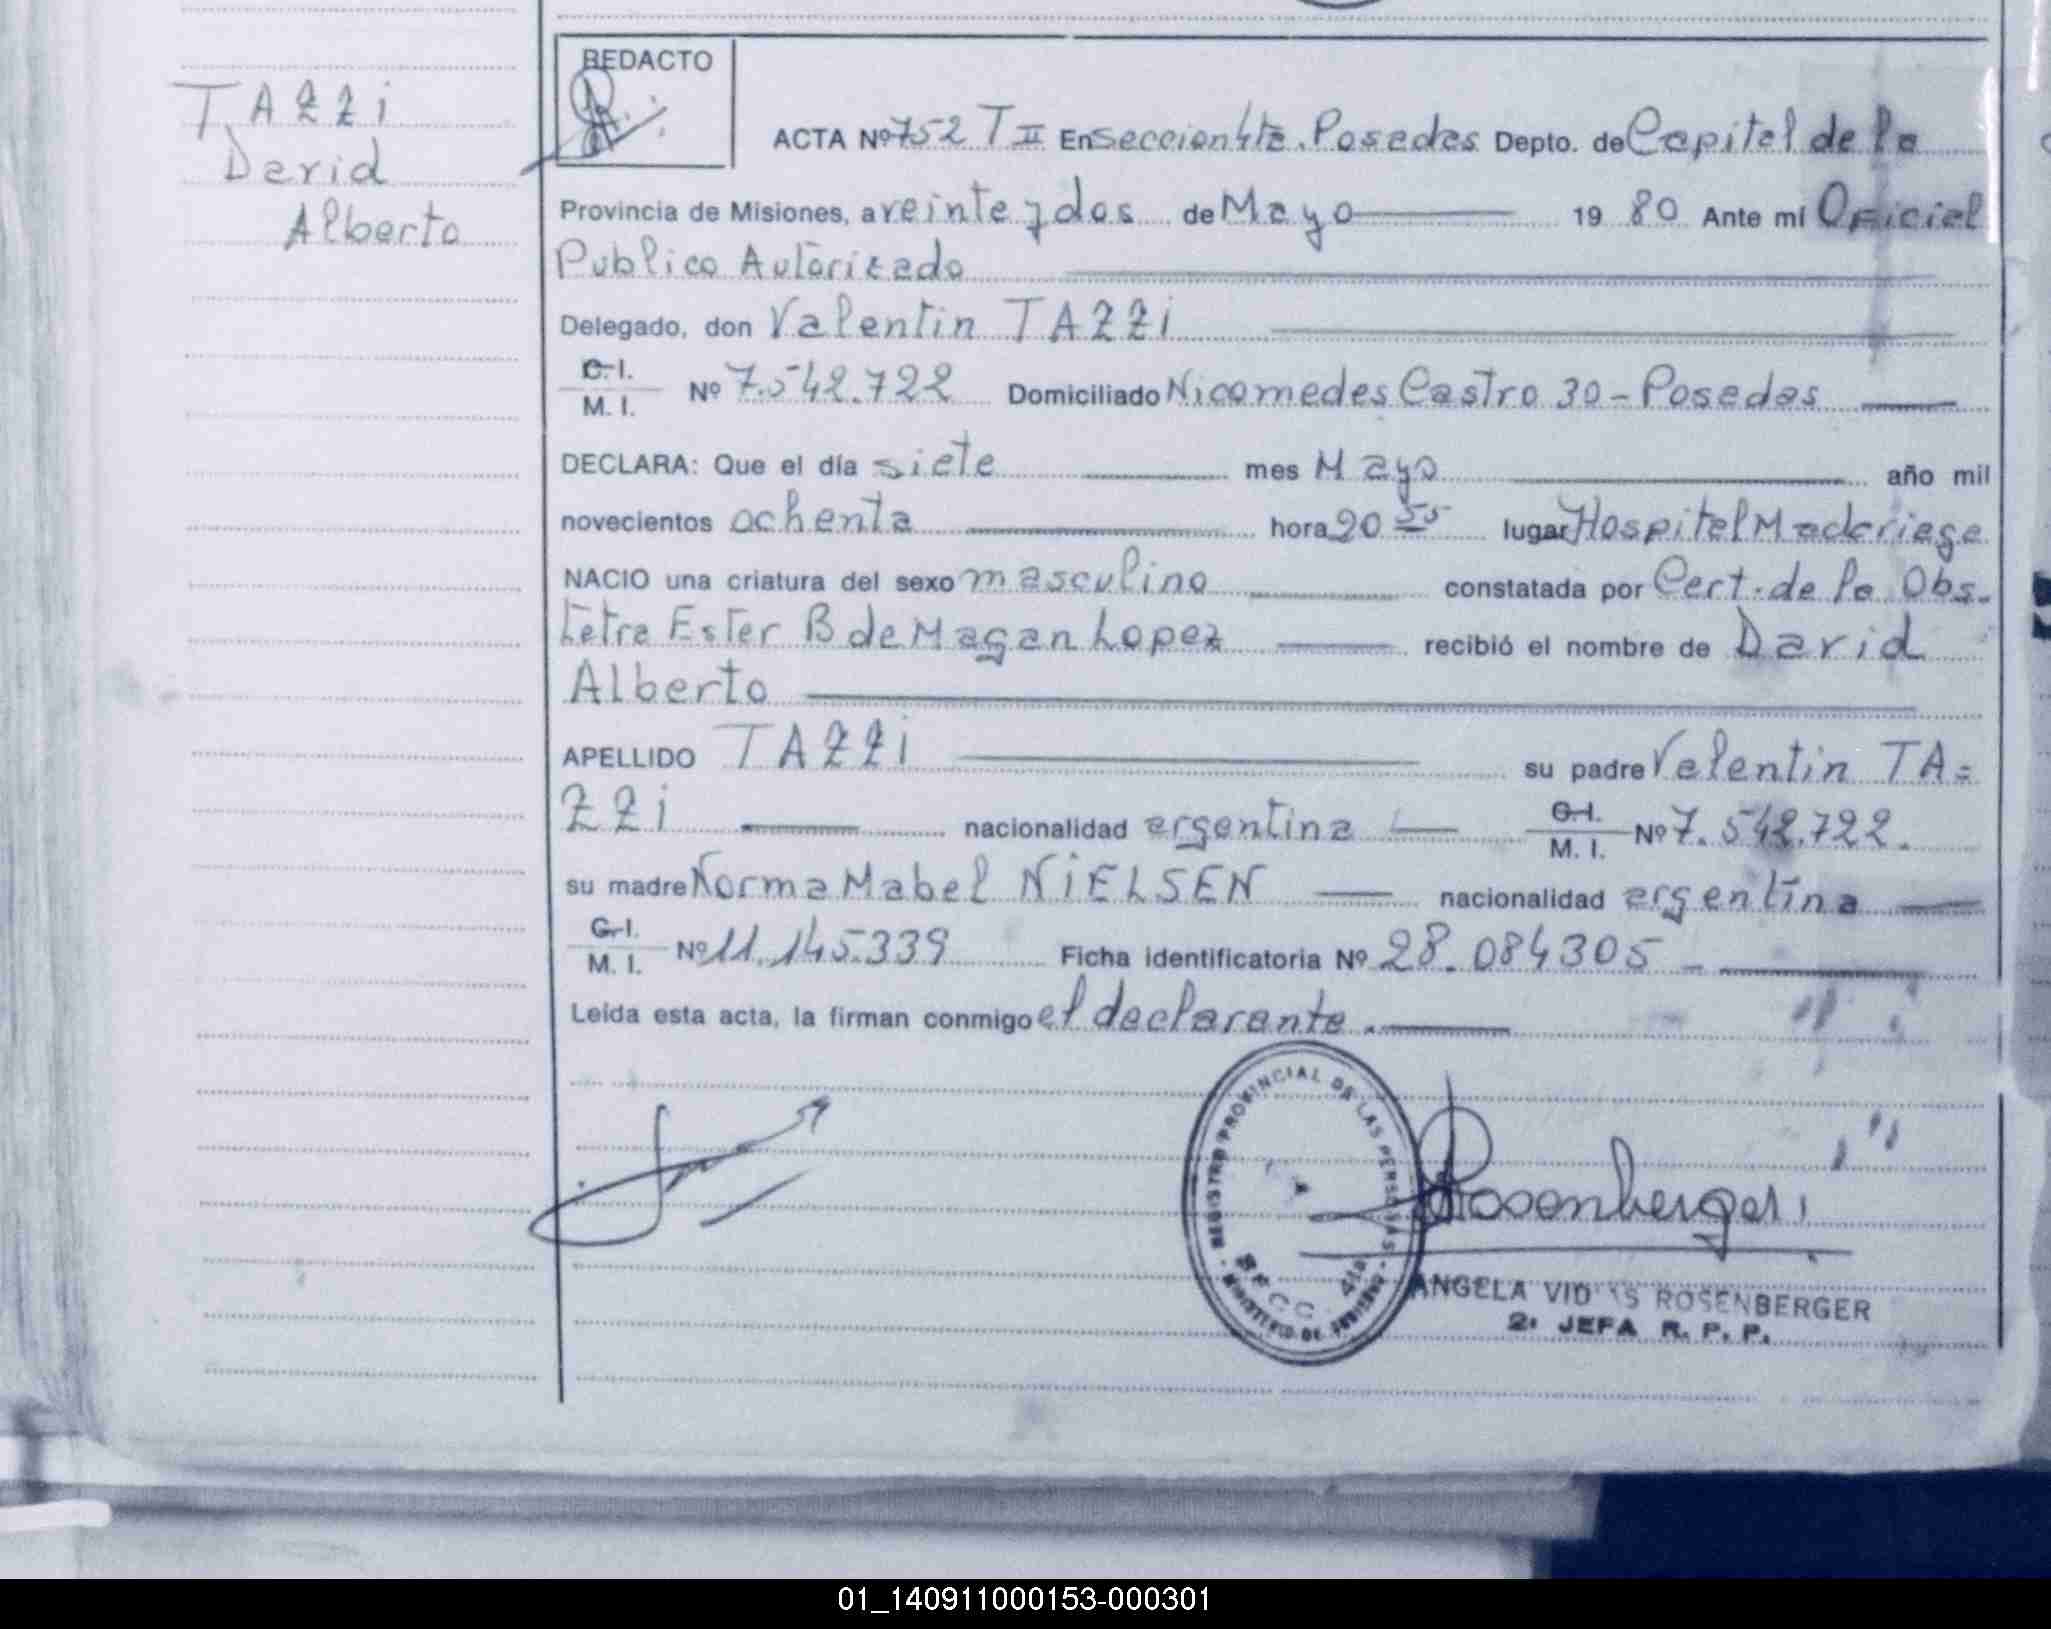 TAZZi
David
Alberto
REDACTO
ACTA Nº 752 T II En Sección 4ta. Posadas Depto. de Capital de la
Provincia de Misiones, a veinte y dos de Mayo 19 80 Ante mí Oficial
Publico Autorizado
Delegado, don Valentin TAZZi
C. I.
M. I. Nº 7.542.722 Domiciliado Nicomedes Castro 30 - Posadas
DECLARA: Que el día siete mes Mayo año mil
novecientos ochenta hora 20 55 lugar Hospital Madariaga
NACIO una criatura del sexo masculino constatada por Cert. de la Obs-
tetra Ester B de Magan Lopez recibió el nombre de David
Alberto
APELLIDO TAZZi su padre Valentin TA=
ZZi nacionalidad argentina C. I.
M. I. Nº 7.542.722.
su madre Norma Mabel NiELSEN nacionalidad argentina
C. I.
M. I. Nº 11.145.339 Ficha identificatoria Nº 28.084305
Leída esta acta, la firman conmigo el declarante.
REGISTRO PROVINCIAL DE LAS PERSONAS
SECC. 4ta
MINISTERIO DE GOBIERNO
Rosenberger
ANGELA ROSENBERGER
2ª JEFA R. P. P.
01_140911000153-000301